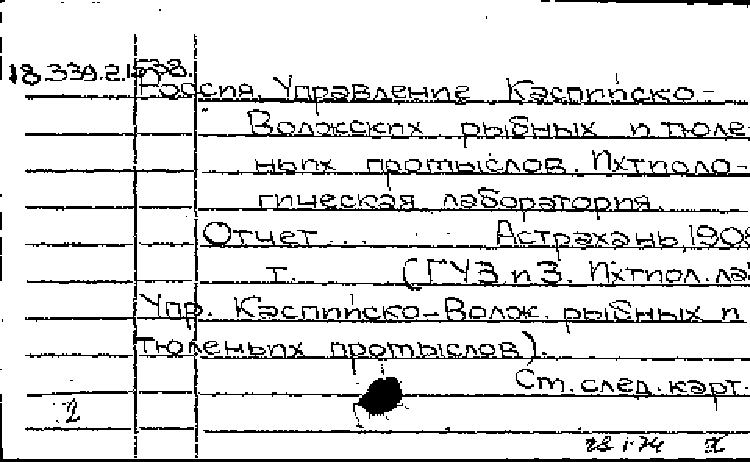 18.339.2.1538.
Россия. Управление Каспийско-
Волжских рыбных и тюле-
ньих промыслов. Ихтиоло-
гическая лаборатория.
Отчет... Астрахань, 1908
т. (ГУЗ и З. Ихтиол. ла
Упр. Каспийско-Волж. рыбных и
тюленьих промыслов).
См. след. карт.
2
28 1·74